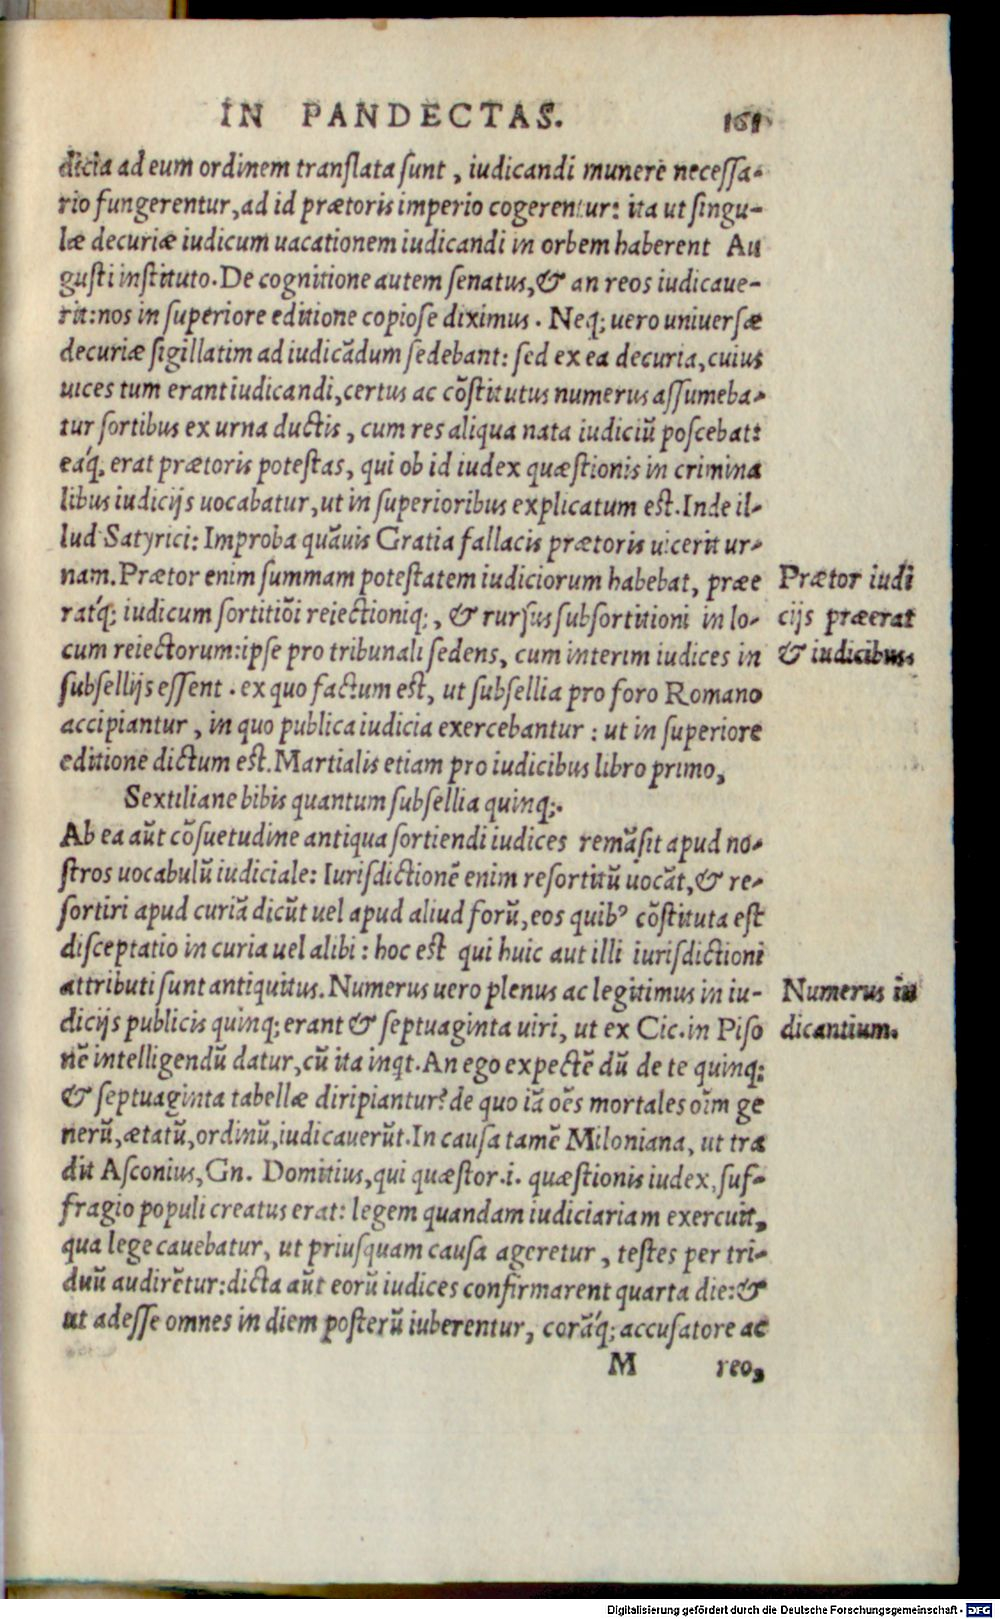 IN PANDECTAS. 161
dicia ad eum ordinem translata sunt, iudicandi munere necessa-
rio fungerentur, ad id prætoris imperio cogerentur: ita ut singu-
læ decuriæ iudicum uacationem iudicandi in orbem haberent Au
gusti instituto. De cognitione autem senatus, & an reos iudicaue-
rit: nos in superiore editione copiose diximus. Neq; uero uniuersæ
decuriæ sigillatim ad iudicādum sedebant: sed ex ea decuria, cuius
uices tum erant iudicandi, certus ac cōstitutus numerus assumeba-
tur sortibus ex urna ductis, cum res aliqua nata iudiciū poscebat:
eáq; erat prætoris potestas, qui ob id iudex quæstionis in crimina
libus iudicijs uocabatur, ut in superioribus explicatum est. Inde il-
lud Satyrici: Improba quāuis Gratia fallacis prætoris uicerit ur-
nam. Prætor enim summam potestatem iudiciorum habebat, præe
ratq́; iudicum sortitiōi reiectioniq;, & rursus subsortitioni in lo-
cum reiectorum: ipse pro tribunali sedens, cum interim iudices in
subsellijs essent. ex quo factum est, ut subsellia pro foro Romano
accipiantur, in quo publica iudicia exercebantur: ut in superiore
editione dictum est. Martialis etiam pro iudicibus libro primo,
Sextiliane bibis quantum subsellia quinq;.
Ab ea aūt cōsuetudine antiqua sortiendi iudices remāsit apud no-
stros uocabulū iudiciale: Iurisdictionē enim resortitū uocāt, & re-
sortiri apud curiā dicūt uel apud aliud forū, eos quibꝰ cōstituta est
disceptatio in curia uel alibi: hoc est qui huic aut illi iurisdictioni
attributi sunt antiquitus. Numerus uero plenus ac legitimus in iu-
dicijs publicis quinq; erant & septuaginta uiri, ut ex Cic. in Piso
nē intelligendū datur, cū ita inqt. An ego expectē dū de te quinq;
& septuaginta tabellæ diripiantur? de quo iā oēs mortales oīm ge
nerū, ætatū, ordinū, iudicauerūt. In causa tamē Miloniana, ut tra
dit Asconius, Gn. Domitius, qui quæstor .i. quæstionis iudex, suf-
fragio populi creatus erat: legem quandam iudiciariam exercuit,
qua lege cauebatur, ut priusquam causa ageretur, testes per tri-
duū audirētur: dicta aūt eorū iudices confirmarent quarta die: &
ut adesse omnes in diem posterū iuberentur, corāq́; accusatore ac
M reo,
Prætor iudi
cijs præerat
& iudicibus.
Numerus iu
dicantium.
Digitalisierung gefördert durch die Deutsche Forschungsgemeinschaft - DFG